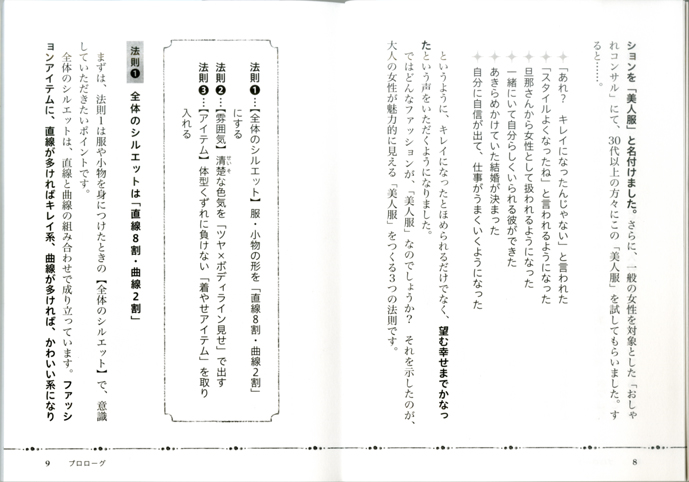 ションを「美人服」と名付けました。さらに、一般の女性を対象とした「おしゃ
れコンサル」にて、30代以上の方々にこの「美人服」を試してもらいました。す
ると……。
「あれ？　キレイになったんじゃない」と言われた
「スタイルよくなったね」と言われるようになった
旦那さんから女性として扱われるようになった
一緒にいて自分らしくいられる彼ができた
あきらめかけていた結婚が決まった
自分に自信が出て、仕事がうまくいくようになった
というように、キレイになったとほめられるだけでなく、望む幸せまでかなっ
たという声をいただくようになりました。
ではどんなファッションが、「美人服」なのでしょうか？　それを示したのが、
大人の女性が魅力的に見える「美人服」をつくる3つの法則です。
8
法則❶…【全体のシルエット】服・小物の形を「直線8割・曲線2割」
にする
法則❷…【雰囲気】清楚な色気を「ツヤ×ボディライン見せ」で出す
せいそ
法則❸…【アイテム】体型くずれに負けない「着やせアイテム」を取り
入れる
法則❶　全体のシルエットは「直線8割・曲線2割」
まずは、法則1は服や小物を身につけたときの【全体のシルエット】で、意識
していただきたいポイントです。
全体のシルエットは、直線と曲線の組み合わせで成り立っています。ファッシ
ョンアイテムに、直線が多ければキレイ系、曲線が多ければ、かわいい系になり
9　プロローグ